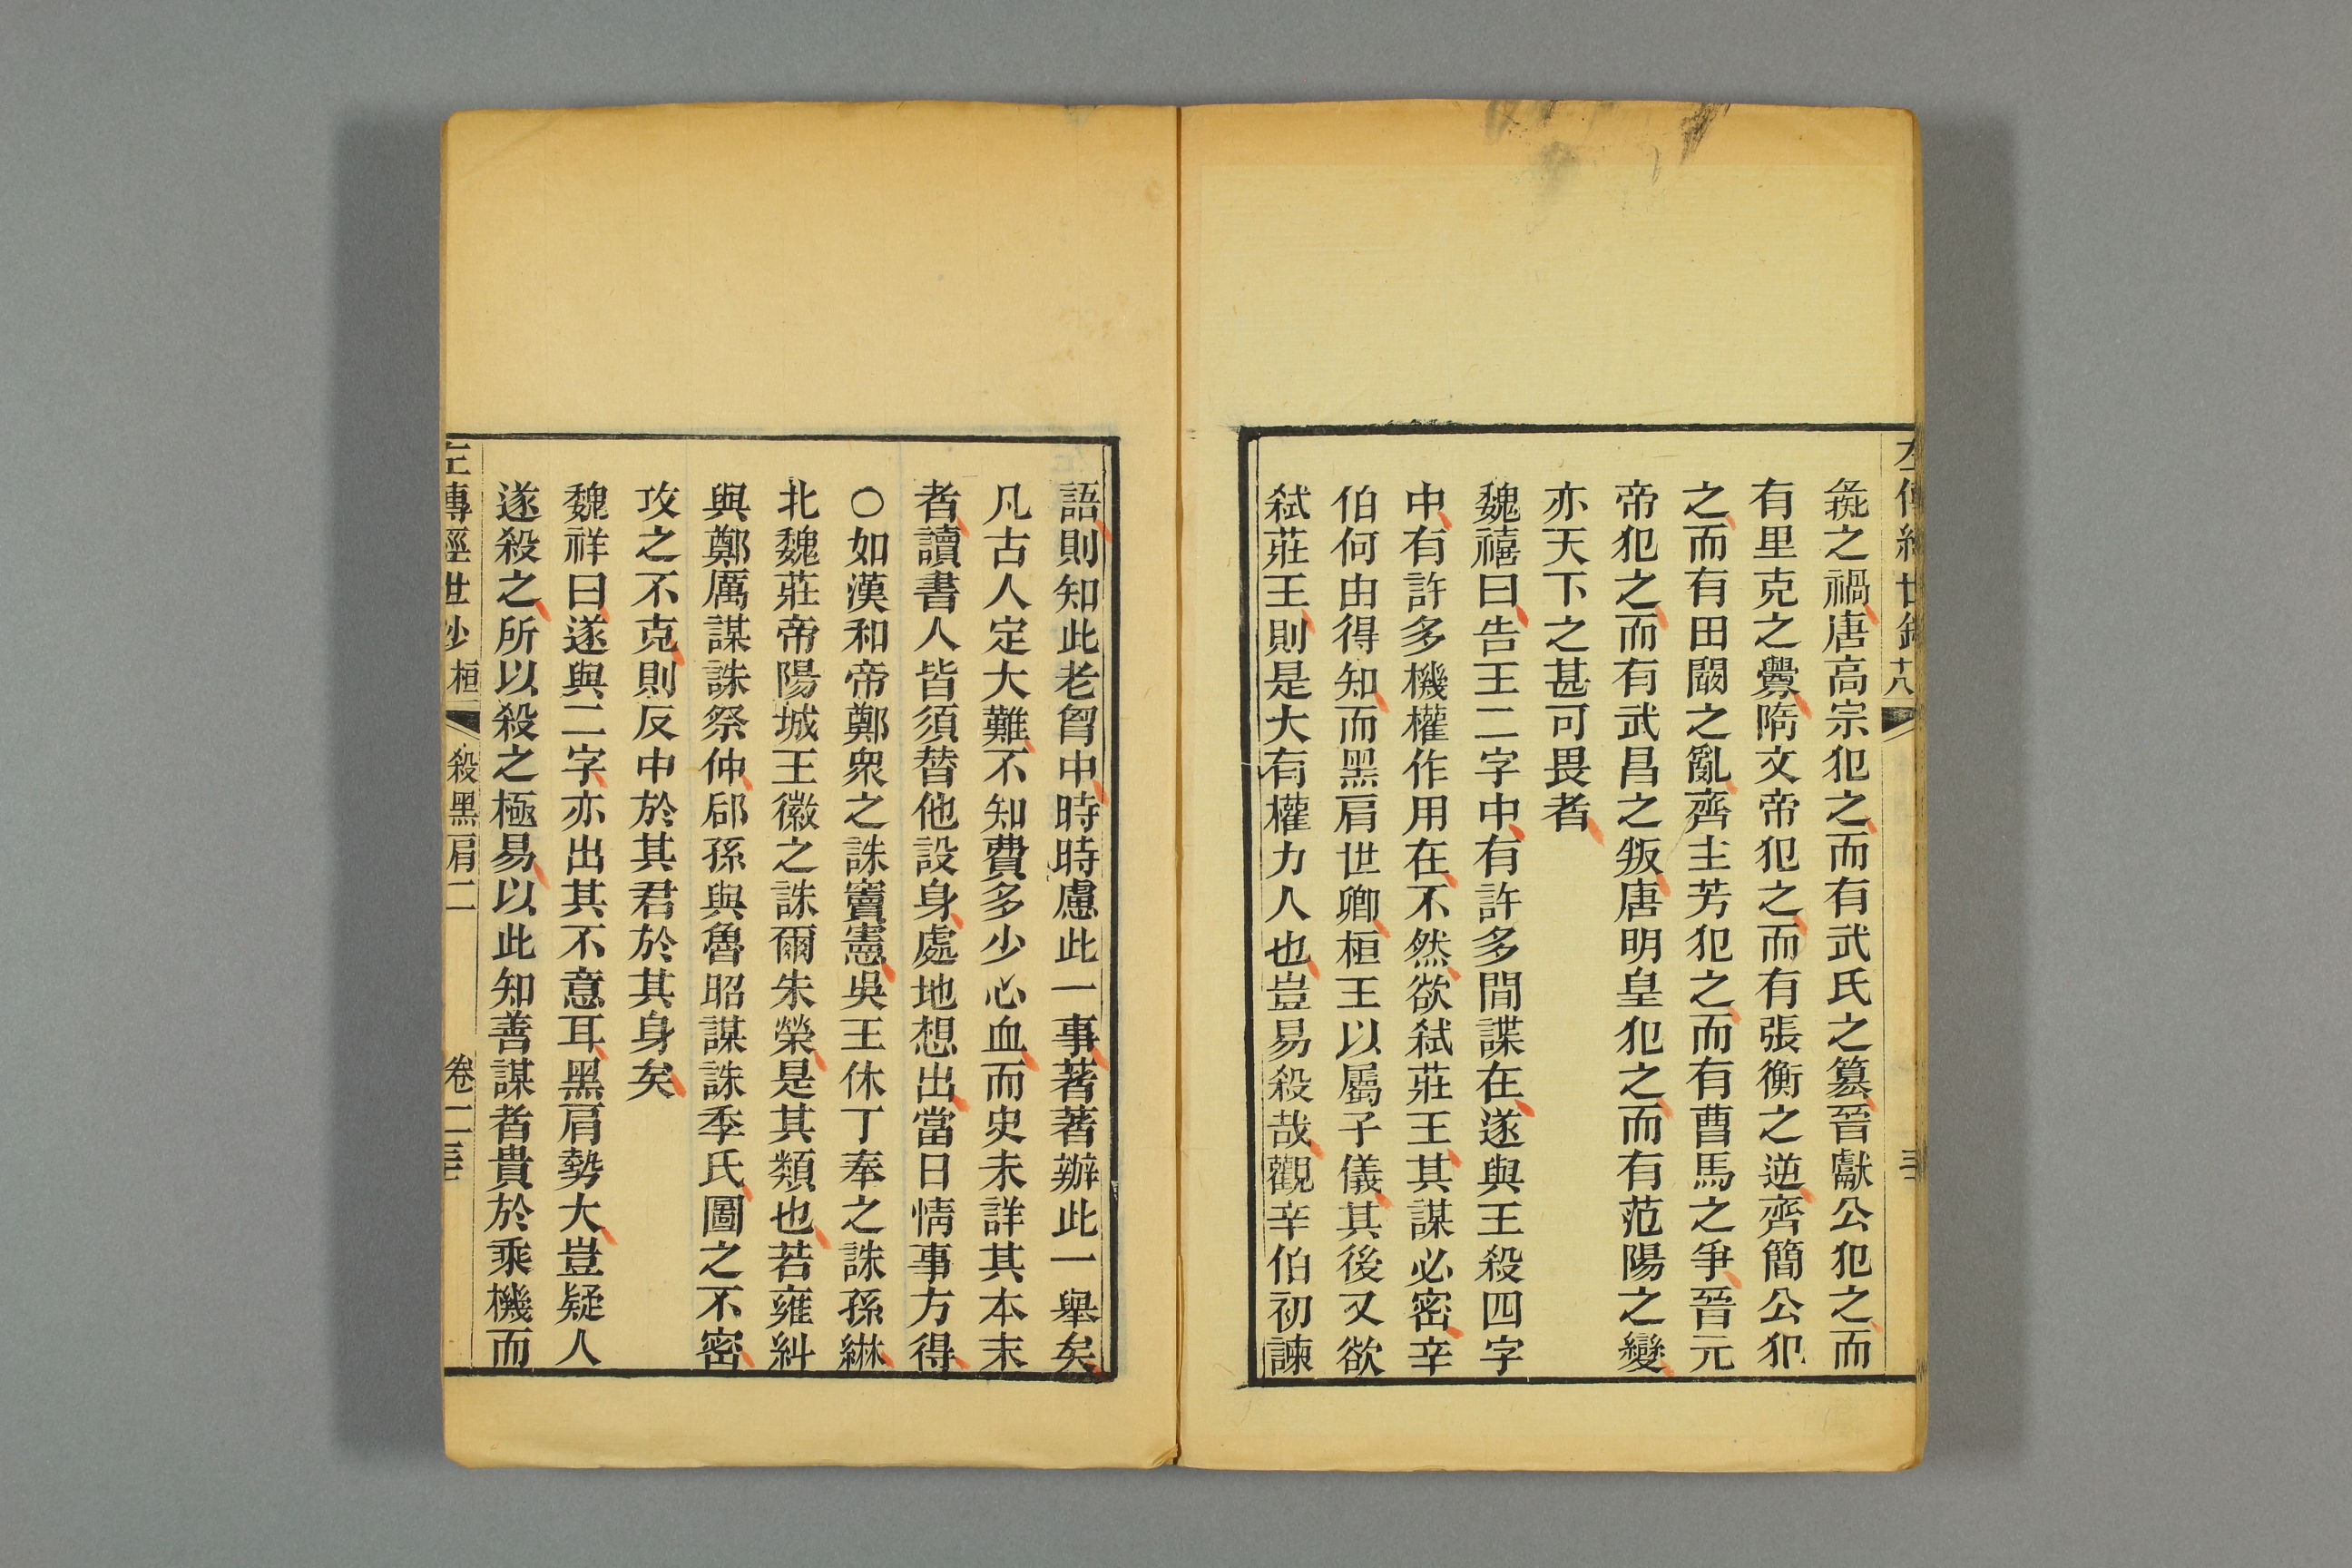 左傳經世鈔 十八
彘之禍唐高宗犯之而有武氏之簒晉獻公犯之而
有里克之釁隋文帝犯之而有張衡之逆齊簡公犯
之而有田闞之亂齊主芳犯之而有曹馬之爭晉元
帝犯之而有武昌之叛唐明皇犯之而有范陽之變
亦天下之甚可畏者
魏禧曰告王二字中有許多間諜在遂與王殺四字
中有許多機權作用在不然欲弑莊王其謀必密辛
伯何由得知而黑肩世卿桓王以屬子儀其後又欲
弑莊王則是大有權力人也豈易殺哉觀辛伯初諫
語則知此老胷中時時慮此一事著著辦此一舉矣
凡古人定大難不知費多少心血而史未詳其本末
者讀書人皆須替他設身處地想出當日情事方得
○如漢和帝鄭衆之誅竇憲吳王休丁奉之誅孫綝
北魏莊帝陽城王徽之誅爾朱榮是其類也若雍糾
與鄭厲謀誅祭仲郈孫與魯昭謀誅季氏圖之不密
攻之不克則反中於其君於其身矣
魏祥曰遂與二字亦出其不意耳黑肩勢大豈疑人
遂殺之所以殺之極易以此知善謀者貴於乘機而
左傳經世鈔 桓 殺黑肩二 卷二